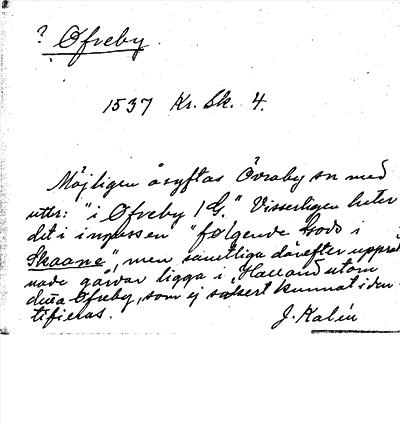 ? Øfreby.
1537 Kr. Sk. 4.
Möjligen åsyftas Övraby sn med
uttr: "i Øfreby / G." Visserligen heter
det i inpassen "følgende Hods i
Skaane", men samtliga därefter uppräk
nade gårdar ligga i Halland utom
dessa Øfreby, som ej säkert kunnat iden
tifieras.
J. Kalén